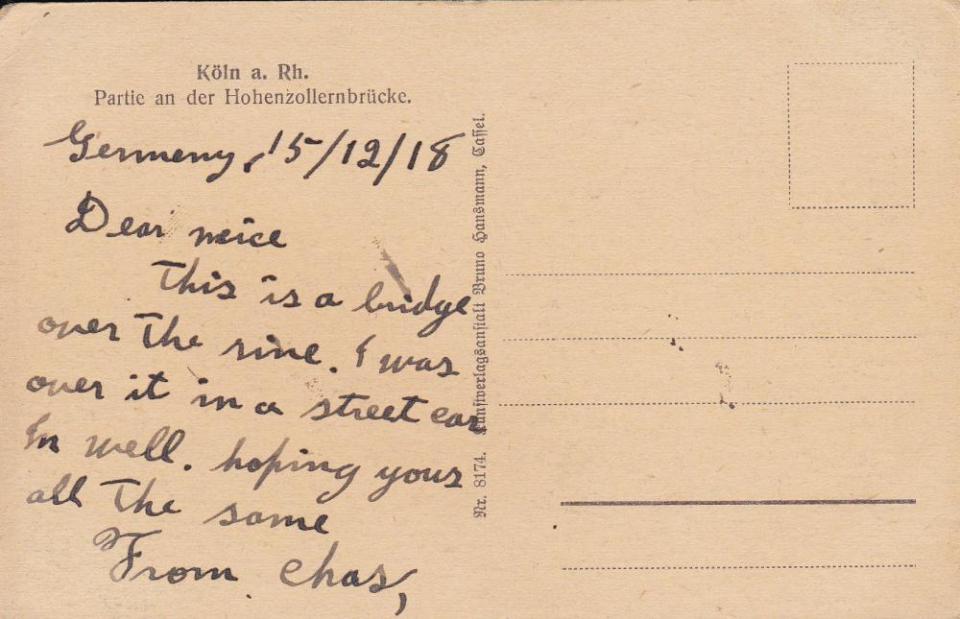 Köln a. Rh.
Partie an der Hohenzollernbrücke.
Germeny, 15/12/18
Dear neice
This is a bridge
over the rine. I was
over it in a street car
Im well. hoping your
all the same
From Chas,
Nr. 8174. Kunstverlagsanstalt Bruno Hansmann, Cassel.